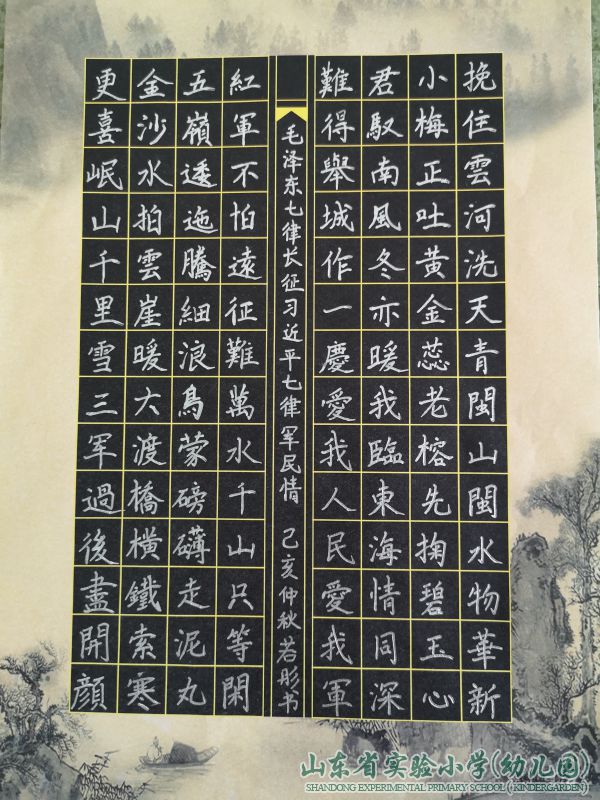 挽住雲河洗天青閩山閩水物華新
小梅正吐黄金蕊老榕先掬碧玉心
君馭南風冬亦暖我臨東海情同深
難得舉城作一慶愛我人民愛我軍
毛泽东七律长征习近平七律军民情 己亥仲秋若彤书
紅軍不怕遠征難萬水千山只等閑
五嶺逶迤騰細浪鳥蒙磅礴走泥丸
金沙水拍雲崖暖大渡橋横鐵索寒
更喜岷山千里雪三军過後盡開顔
山东省实验小学(幼儿园)
SHANDONG EXPERIMENTAL PRIMARY SCHOOL (KINDERGARDEN)